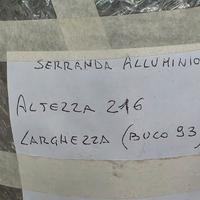 SERRANDA ALLUMINIO
ALTEZZA 216
LARGHEZZA (BUCO 93)